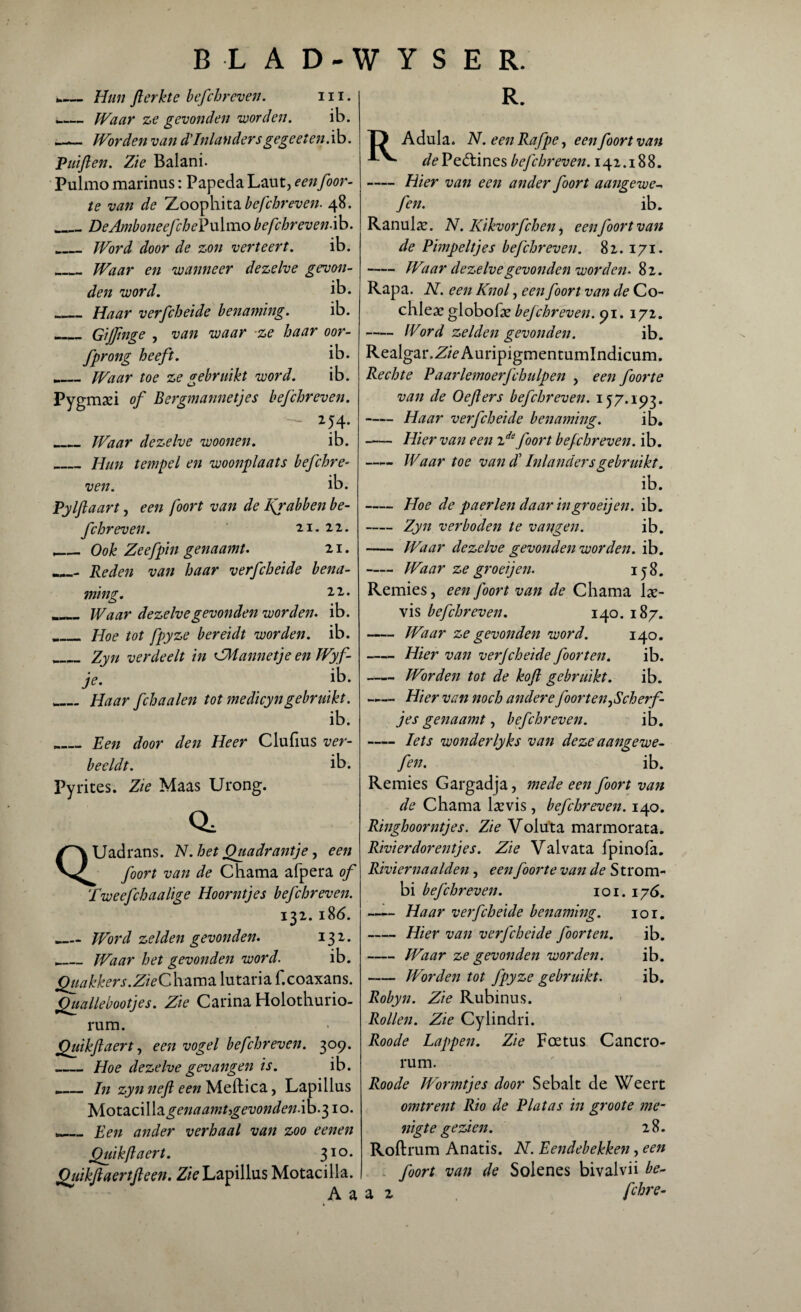 BLAD-WYSER.
—— Hun sterkte beschreven. 111.
—— Waar ze gevonden worden. ib.
—— Worden van d'Inlanders gegeeten. ib.
Puisten. Zie Balani.
Pulmo marinus: Papeda Laut, een soor-
te van de Zoophita beschreven. 48.
—— De Amboneesche Pulmo beschreven. ib.
—— Word door de zon verteert. ib.
—— Waar en wanneer dezelve gevon-
den word. ib.
—— Haar verscheide benaming. ib.
—— Gissinge, van waar ze haar oor-
sprong heeft. ib.
—— Waar toe ze gebruikt word. ib.
Pygmæi of Bergmannetjes beschreven.
254.
—— Waar dezelve woonen. ib.
—— Hun tempel en woonplaats beschre-
ven. ib.
Pylstaart, een soort van de Krabben be-
schreven. 21. 22.
—— Ook Zeespin genaamt. 21.
—— Reden van haar verscheide bena-
ming. 22.
—— Waar dezelve gevonden worden. ib.
—— Hoe tot spyze bereidt worden. ib.
—— Zyn verdeelt in Mannetje en Wyf-
je. ib.
—— Haar schaalen tot medicyn gebruikt.
ib.
—— Een door den Heer Clusius ver-
beeldt. ib.
Pyrites. Zie Maas Urong.
Q.
QUadrans. N. het Quadrantje, een
soort van de Chama aspera of
Tweeschaalige Hoorntjes beschreven.
132. 186.
—— Word zelden gevonden. 132.
—— Waar het gevonden word. ib.
Quakkers. Zie Chama lutaria f. coaxans.
Quallebootjes. Zie Carina Holothurio-
rum.
Quikstaert, een vogel beschreven. 309.
—— Hoe dezelve gevangen is. ib.
—— In zyn nest een Mestica, Lapillus
Motacilla genaamt, gevonden. ib. 310.
—— Een ander verhaal van zoo eenen
Quikstaert. 310.
Quikstaertsteen. Zie Lapillus Motacilla.
R.
RAdula. N. een Raspe, een soort van
de Pectines beschreven. 142. 188.
—— Hier van een ander soort aangewe-
sen. ib.
Ranulæ. N. Kikvorschen, een soort van
de Pimpeltjes beschreven. 82. 171.
—— Waar dezelve gevonden worden. 82.
Rapa. N. een Knol, een soort van de Co-
chleæ globosæ beschreven. 91. 172.
—— Word zelden gevonden. ib.
Realgar. Zie Auripigmentum Indicum.
Rechte Paarlemoerschulpen, een soorte
van de Oesters beschreven. 157. 193.
—— Haar verscheide benaming. ib.
—— Hier van een 2de soort beschreven. ib.
—— Waar toe van d' Inlanders gebruikt.
ib.
—— Hoe de paerlen daar in groeijen. ib.
—— Zyn verboden te vangen. ib.
—— Waar dezelve gevonden worden. ib.
—— Waar ze groeijen. 158.
Remies, een soort van de Chama læ-
vis beschreven. 140. 187.
—— Waar ze gevonden word. 140.
—— Hier van verscheide soorten. ib.
—— Worden tot de kost gebruikt. ib.
—— Hier van noch andere soorten, Scherf-
jes genaamt, beschreven. ib.
—— Iets wonderlyks van deze aangewe-
sen. ib.
Remies Gargadja, mede een soort van
de Chama lævis, beschreven. 140.
Ringhoorntjes. Zie Voluta marmorata.
Rivierdorentjes. Zie Valvata spinosa.
Riviernaalden, een soorte van de Strom-
bi beschreven. 101. 176.
—— Haar verscheide benaming. 101.
—— Hier van verscheide soorten. ib.
—— Waar ze gevonden worden. ib.
—— Worden tot spyze gebruikt. ib.
Robyn. Zie Rubinus.
Rollen. Zie Cylindri.
Roode Lappen. Zie Fœtus Cancro-
rum.
Roode Wormtjes door Sebalt de Weert
omtrent Rio de Platas in groote me-
nigte gezien. 28.
Rostrum Anatis. N. Eendebekken, een
soort van de Solenes bivalvii be-
Aaa 2 schre-